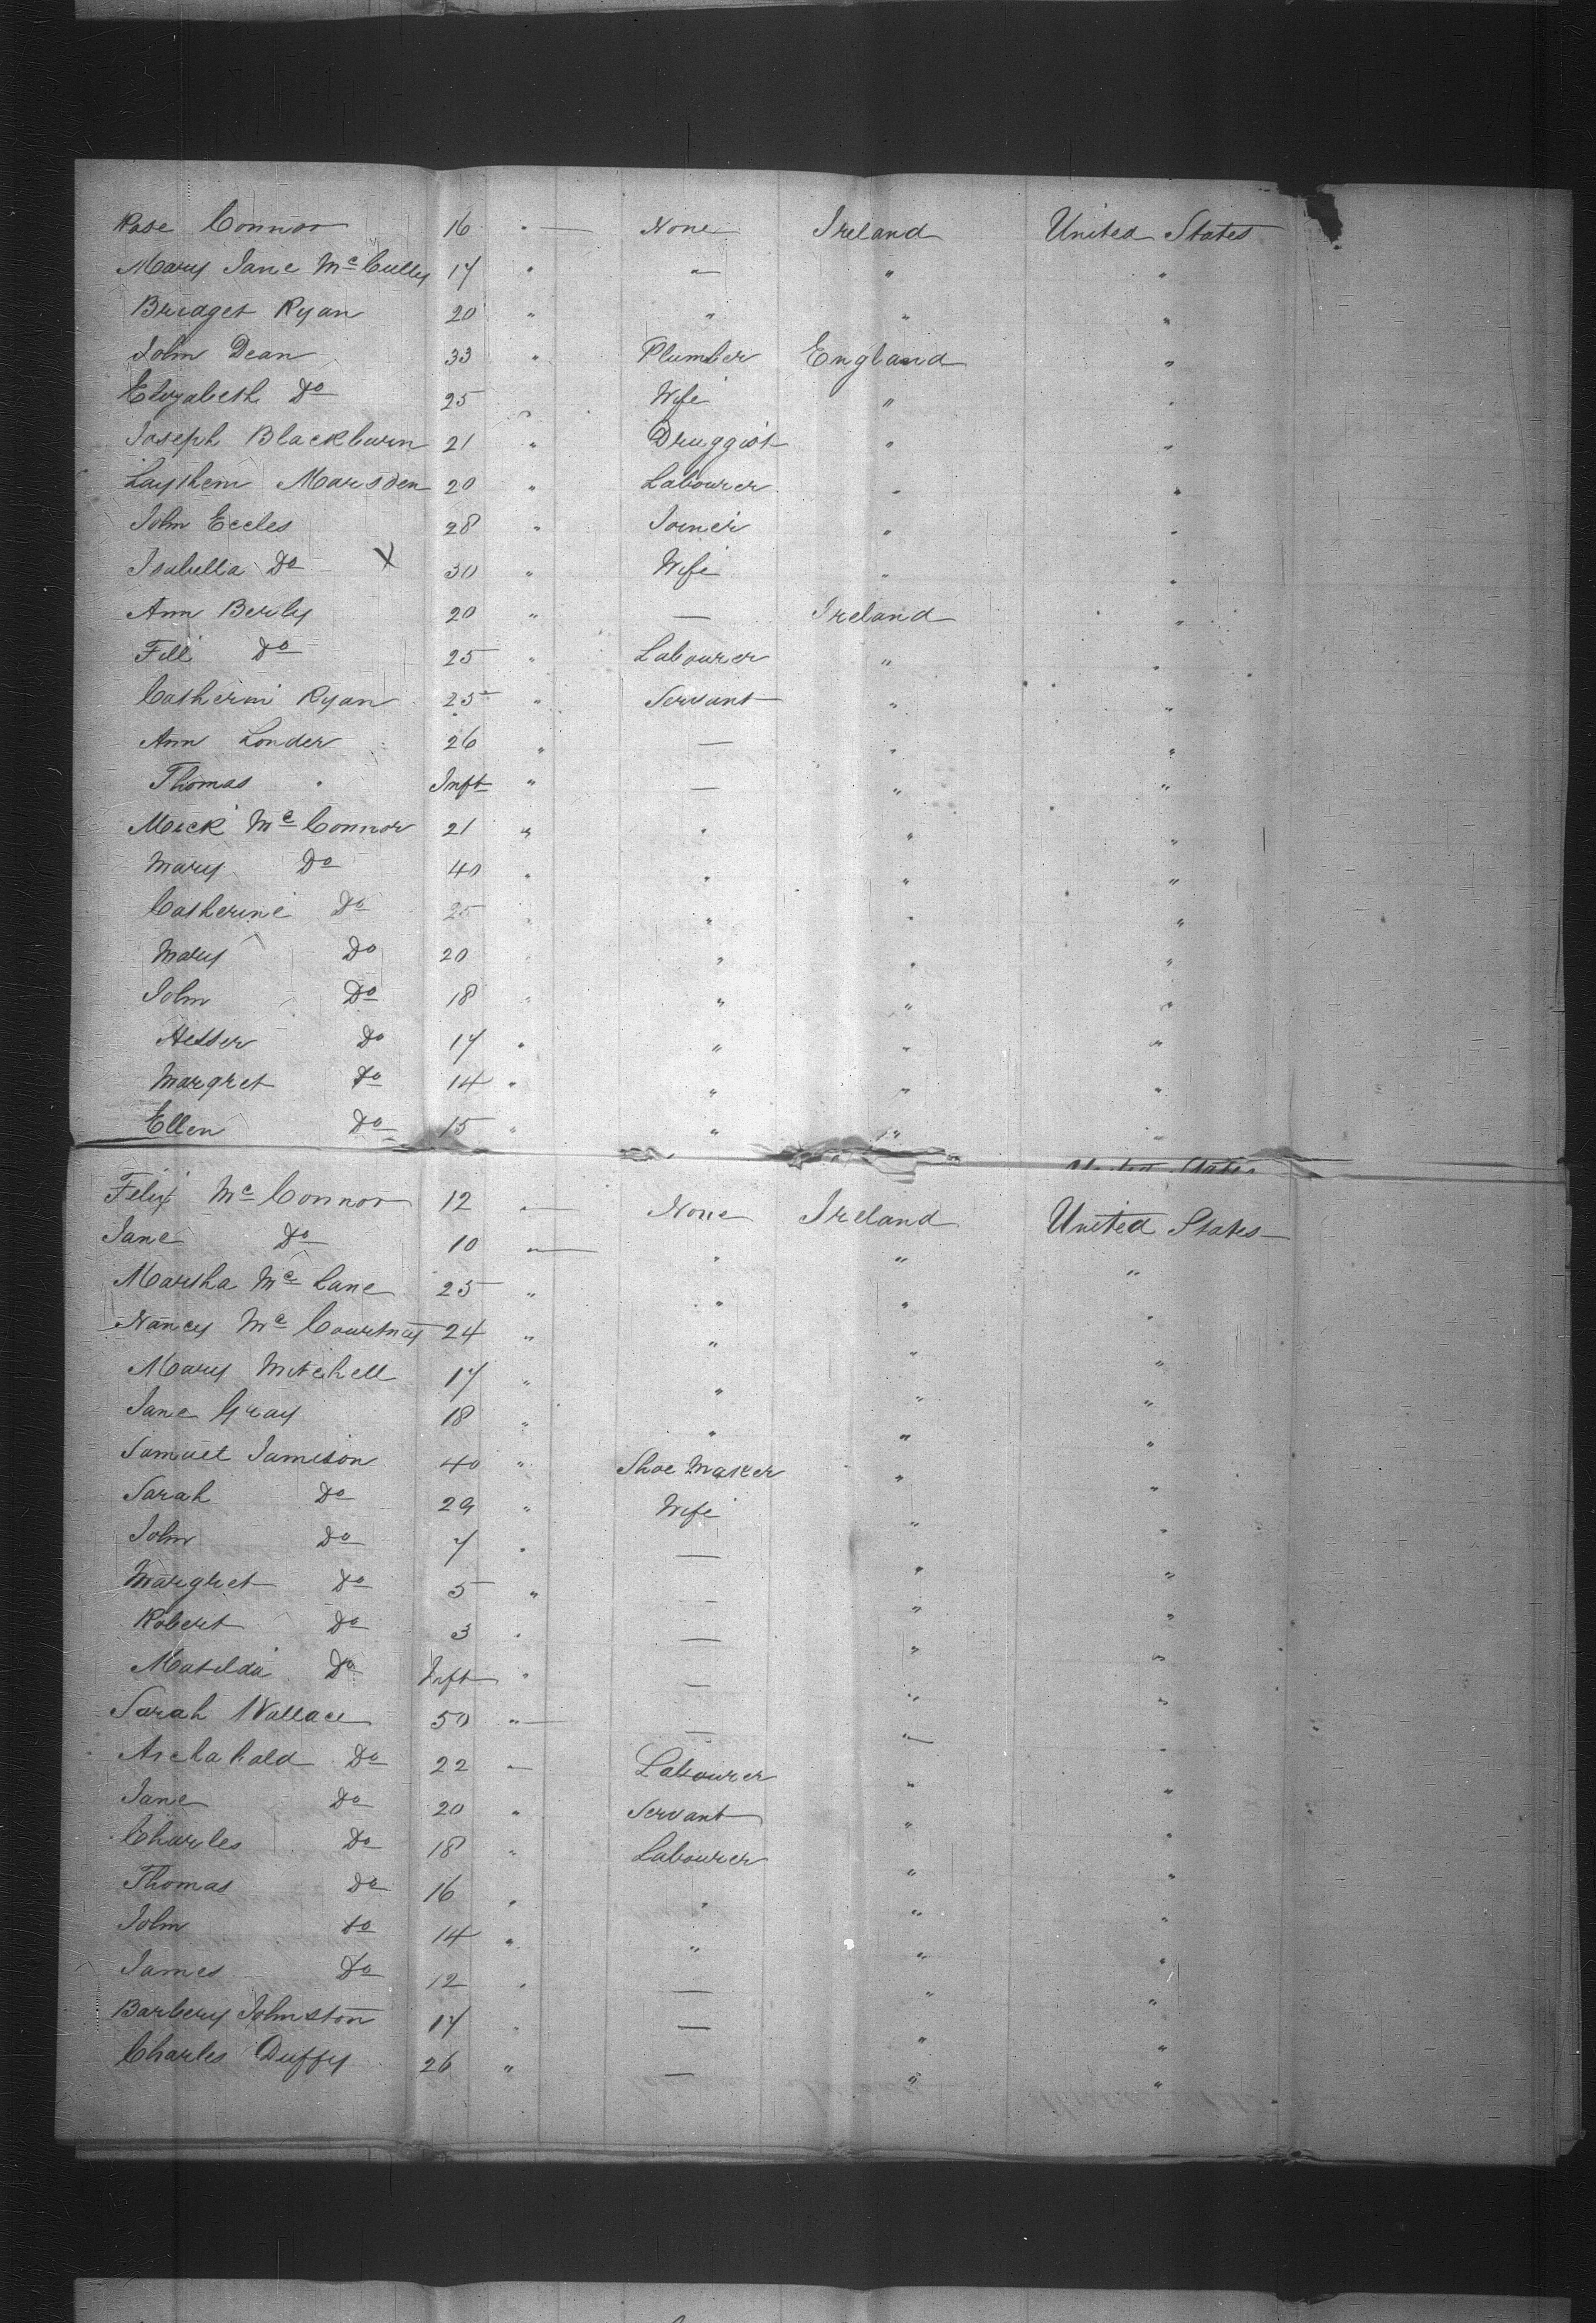 Rose Connor 16 " — None Ireland United States
Mary Jane McCully 17 " " " "
Bridget Ryan 20 " " " "
John Dean 33 " Plumber England "
Elizabeth Do 25 " Wife " "
Joseph Blackburn 21 " Druggist " "
Marsden 20 " Labourer " "
John Eccles 28 " Joiner " "
Isabella Do X 30 " Wife " "
Ann 20 " — Ireland "
Do 25 " Labourer " "
Catherine Ryan 25 " Servant " "
Ann Londer 26 " — " "
Thomas " Inft " — " "
Mick McConnor 21 " " " "
Mary Do 40 " " " "
Catherine Do 25 " " " "
Mary Do 20 " " " "
John Do 18 " " " "
Hester Do 17 " " " "
Margret Do 14 " " " "
Ellen Do 15 " " " "
United States
Felix McConnor 12 — None Ireland United States
Jane Do 10 " " " "
Martha McCane 25 " " " "
Nancy McCourtney 24 " " " "
Mary Mitchell 17 " " " "
Jane Gray 18 " " " "
Samuel Jamison 40 " Shoe Maker " "
Sarah Do 29 " Wife " "
John Do 7 " — " "
Margret Do 5 " — " "
Robert Do 3 " — " "
Matilda Do Inft " — " "
Sarah Wallace 50 " — " "
Archabald Do 22 " Labourer " "
Jane Do 20 " Servant " "
Charles Do 18 " Labourer " "
Thomas Do 16 " " " "
John Do 14 " " " "
James Do 12 " — " "
Barbery Johnston 17 " — " "
Charles Duffy 26 " — " "